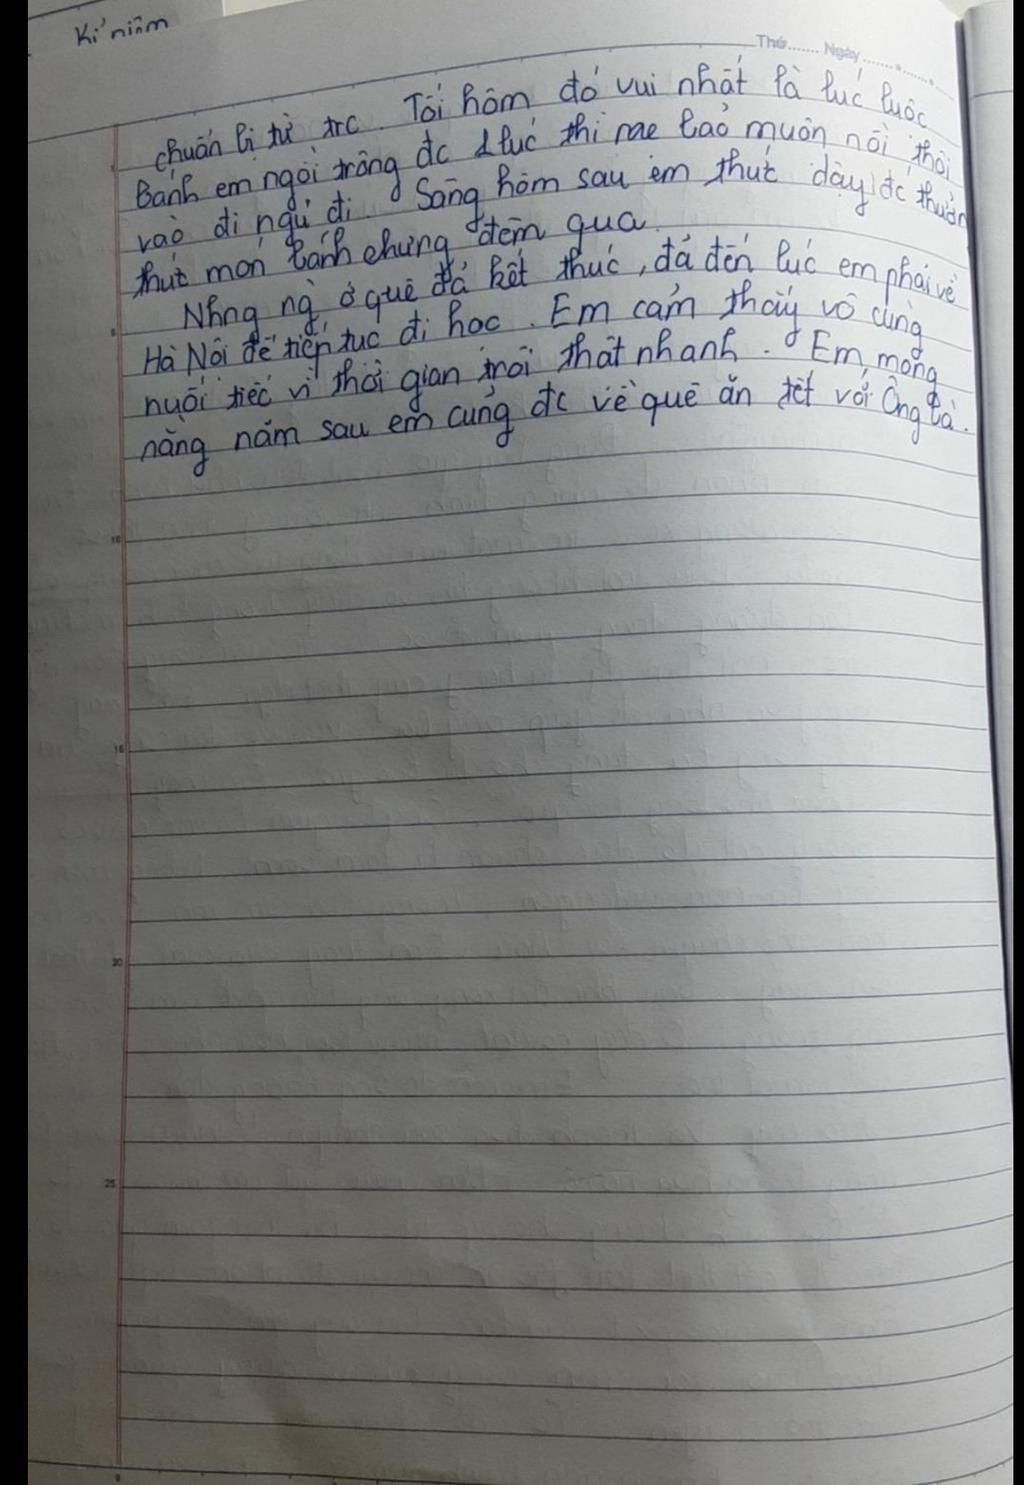 Kỉ niệm
Thứ....... Ngày.......
chuẩn bị từ trc. Tối hôm đó vui nhất là lúc luộc
Bánh em ngồi trông đc 1 lúc thì mẹ bảo muộn rồi thôi
vào đi ngủ đi. Sáng hôm sau em thức dậy đc thưởn
thức món bánh chưng đêm qua.
Nhng ng ở quê đã kết thúc, đã đến lúc em phải về
Hà Nội để tiếp tục đi học. Em cảm thấy vô cùng
nuối tiếc vì thời gian trôi thật nhanh. Em mong
rằng năm sau em cũng đc về quê ăn tết với Ông bà.
5
10
15
20
25